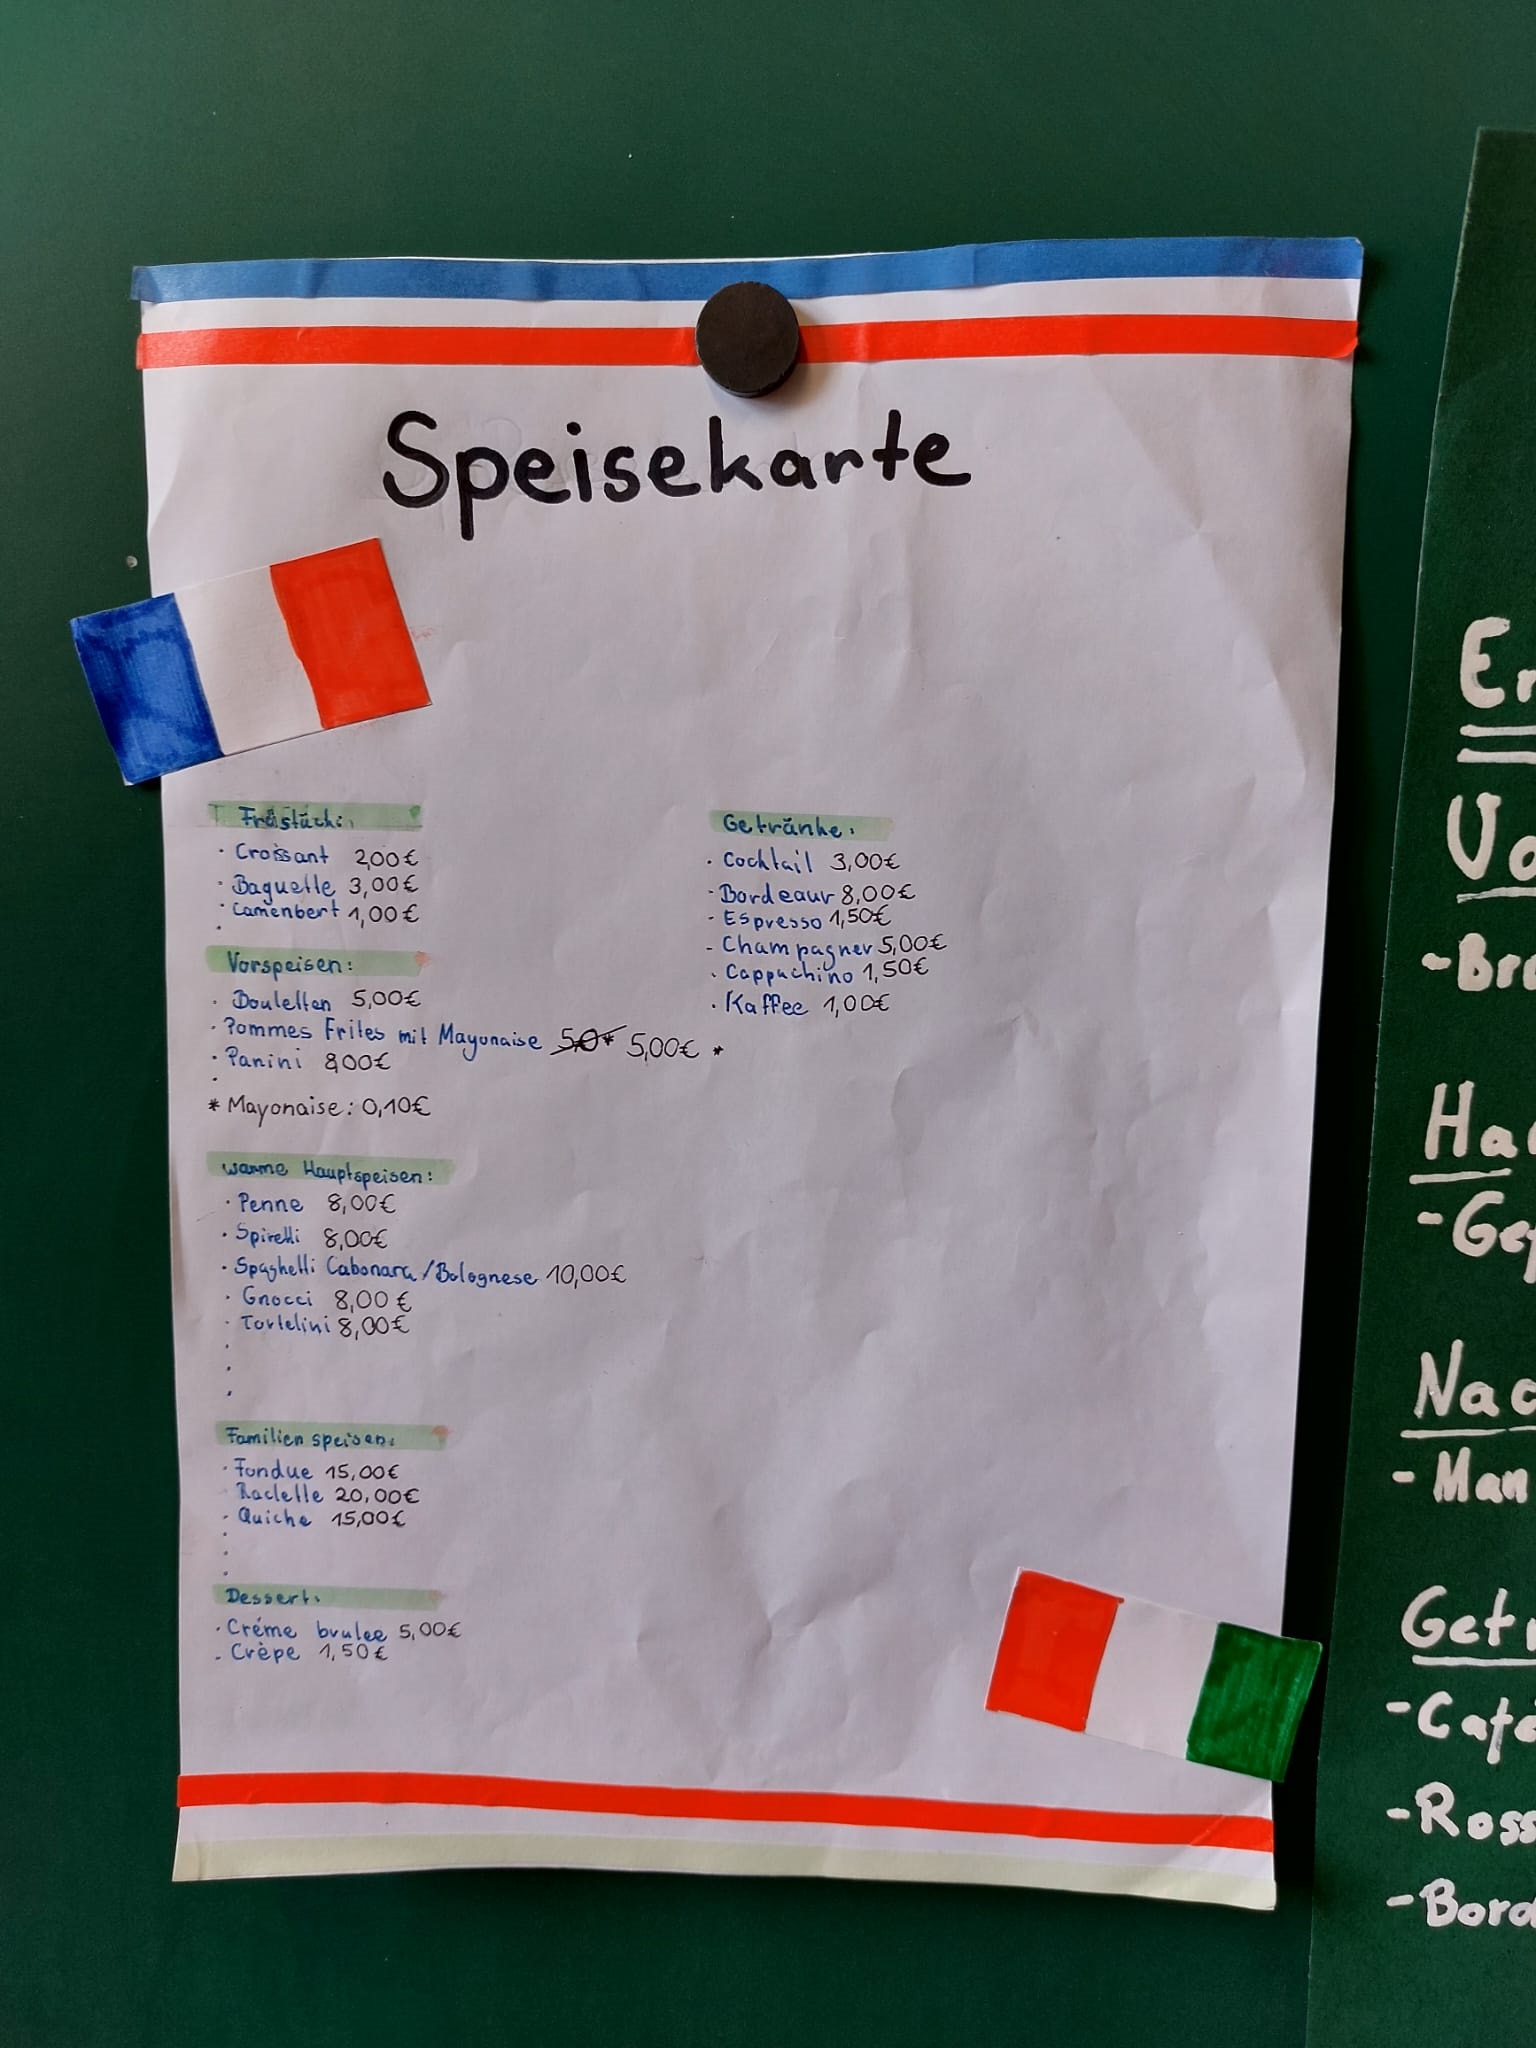 Speisekarte
Früstück:
· Croissant 2,00€
· Baguette 3,00€
· Camenbert 1,00€
Vorspeisen:
· Bouletten 5,00€
· Pommes Frites mit Mayonaise 5,0* 5,00€ *
· Panini 8,00€
* Mayonaise: 0,10€
warme Hauptspeisen:
· Penne 8,00€
· Spirelli 8,00€
· Spaghetti Cabonara/Bolognese 10,00€
· Gnocci 8,00€
· Tortelini 8,00€
Familienspeisen:
· Fondue 15,00€
· Raclette 20,00€
· Quiche 15,00€
Dessert:
· Créme brulee 5,00€
· Crèpe 1,50€
Getränke:
· Cocktail 3,00€
· Bordeaux 8,00€
- Espresso 1,50€
- Champagner 5,00€
· Cappuchino 1,50€
· Kaffee 1,00€
En
Vo
-Bro
Hau
-Gef
Nac
-Man
Getr
-Café
-Ross
-Bord